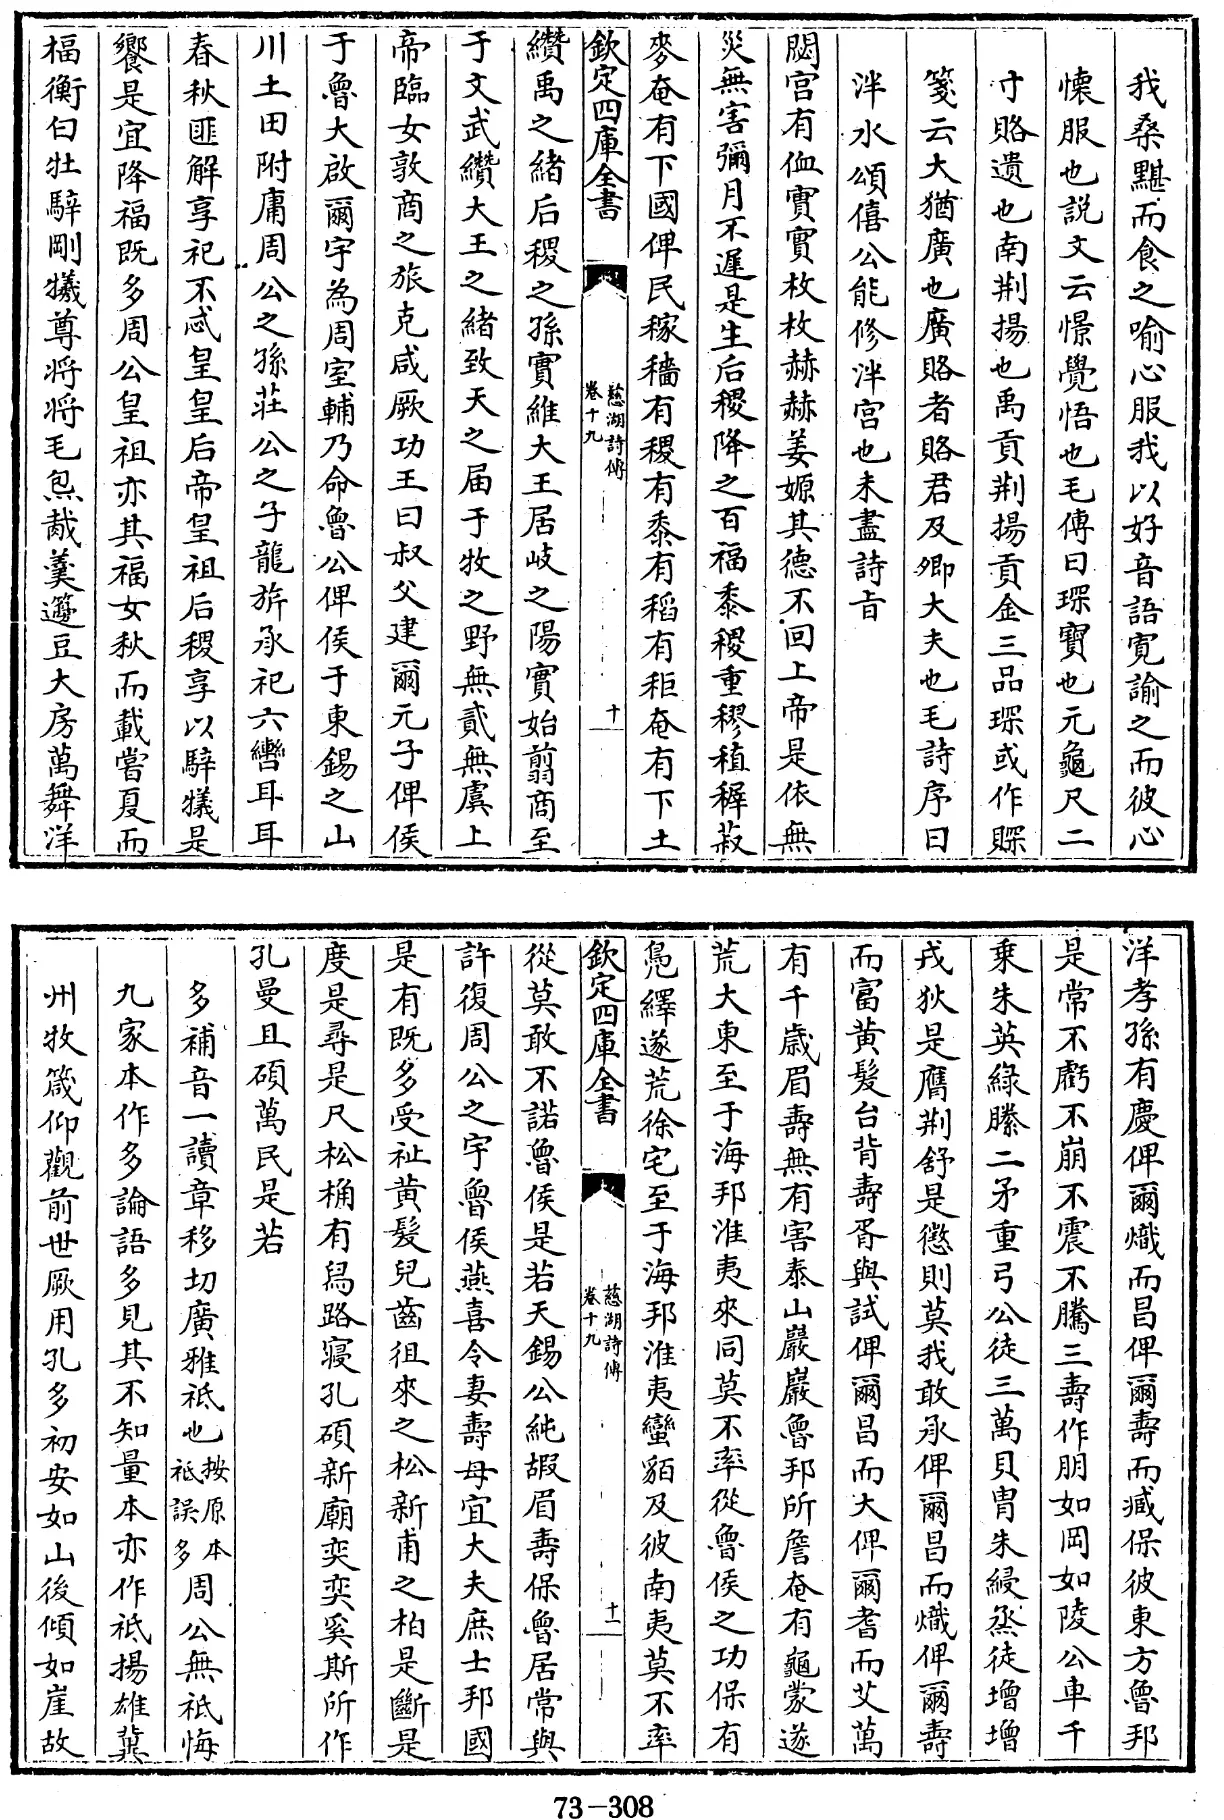 我桑黮而食之喻心服我以好音語寛諭之而彼心
懐服也説文云憬覺悟也毛傳曰琛寳也元龜尺二
寸賂遺也南荆揚也禹貢荆揚貢金三品琛或作賝
箋云大猶廣也廣賂者賂君及卿大夫也毛詩序曰
泮水頌僖公能修泮宫也未盡詩㫖
閟宫有侐實實枚枚赫赫姜嫄其德不回上帝是依無
災無害彌月不遲是生后稷降之百福黍稷重穋稙穉菽
麥奄有下國俾民稼穡有稷有黍有稻有秬奄有下土
欽定四庫全書
慈湖詩傳
卷十九
十
纘禹之緒后稷之孫實維大王居岐之陽實始翦商至
于文武纘大王之緒致天之届于牧之野無貳無虞上
帝臨女敦商之旅克咸厥功王曰叔父建爾元子俾侯
于魯大啟爾宇為周室輔乃命魯公俾侯于東錫之山
川土田附庸周公之孫莊公之子龍旂承祀六轡耳耳
春秋匪解享祀不忒皇皇后帝皇祖后稷享以騂犧是
饗是宜降福既多周公皇祖亦其福女秋而載嘗夏而
楅衡白牡騂剛犧尊將將毛炰胾羹籩豆大房萬舞洋
洋孝孫有慶俾爾熾而昌俾爾壽而臧保彼東方魯邦
是常不虧不崩不震不騰三壽作朋如岡如陵公車千
乗朱英緑縢二矛重弓公徒三萬貝胄朱綅烝徒增增
戎狄是膺荆舒是懲則莫我敢承俾爾昌而熾俾爾壽
而富黄髮台背壽胥與試俾爾昌而大俾爾耆而艾萬
有千歲眉壽無有害泰山巖巖魯邦所詹奄有龜蒙遂
荒大東至于海邦淮夷來同莫不率從魯侯之功保有
鳬繹遂荒徐宅至于海邦淮夷蠻貊及彼南夷莫不率
欽定四庫全書
慈湖詩傳
卷十九
十一
從莫敢不諾魯侯是若天錫公純嘏眉壽保魯居常與
許復周公之宇魯侯燕喜令妻壽母宜大夫庶士邦國
是有既多受祉黄髮兒齒徂來之松新甫之柏是斷是
度是尋是尺松桷有舄路寢孔碩新廟奕奕奚斯所作
孔曼且碩萬民是若
多補音一讀章移切廣雅祗也按原本祗誤多周公無祗悔
九家本作多論語多見其不知量本亦作祗揚雄冀
州牧箴仰觀前世厥用孔多初安如山後傾如崖故
73-308